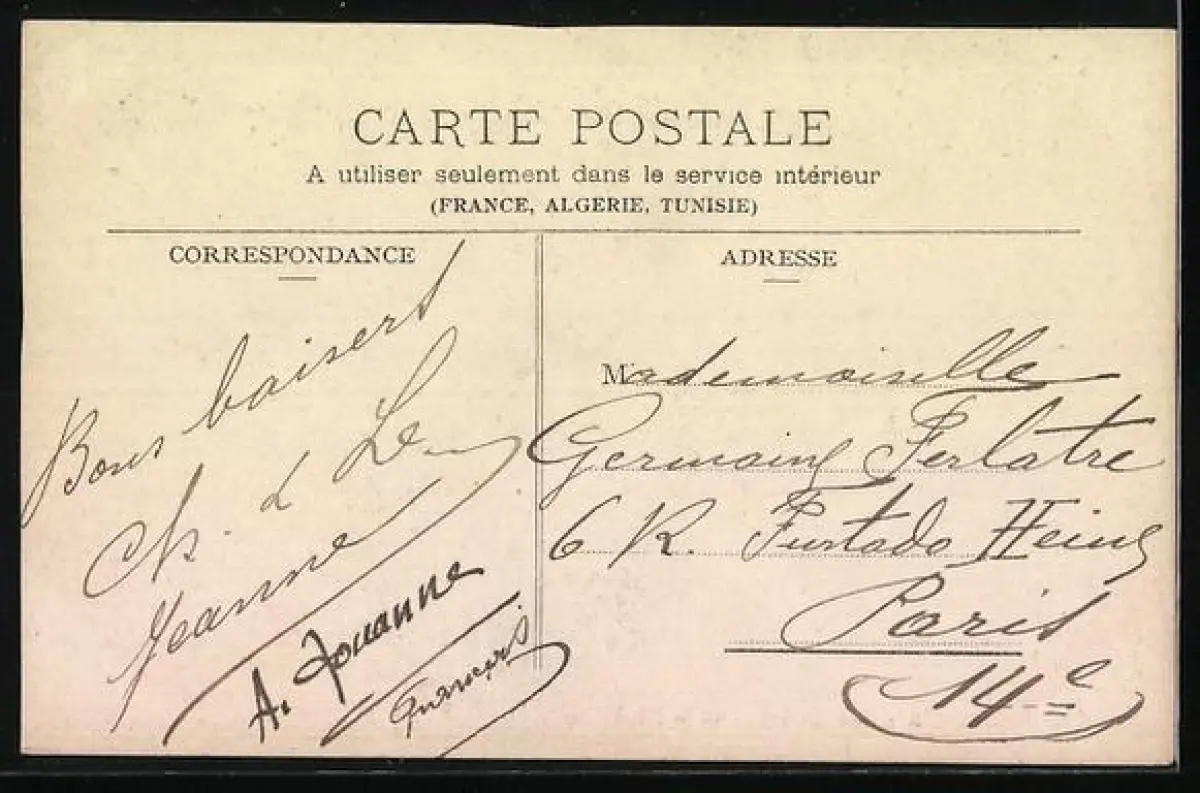 CARTE POSTALE
A utiliser seulement dans le service intérieur
(FRANCE, ALGERIE, TUNISIE)
CORRESPONDANCE
Bons baisers
Ch. & Le
Jeanne
A. Jouanne
ADRESSE
Mademoiselle
Germaine Ferlatre
6 R. Furtado Heine
Paris
14e